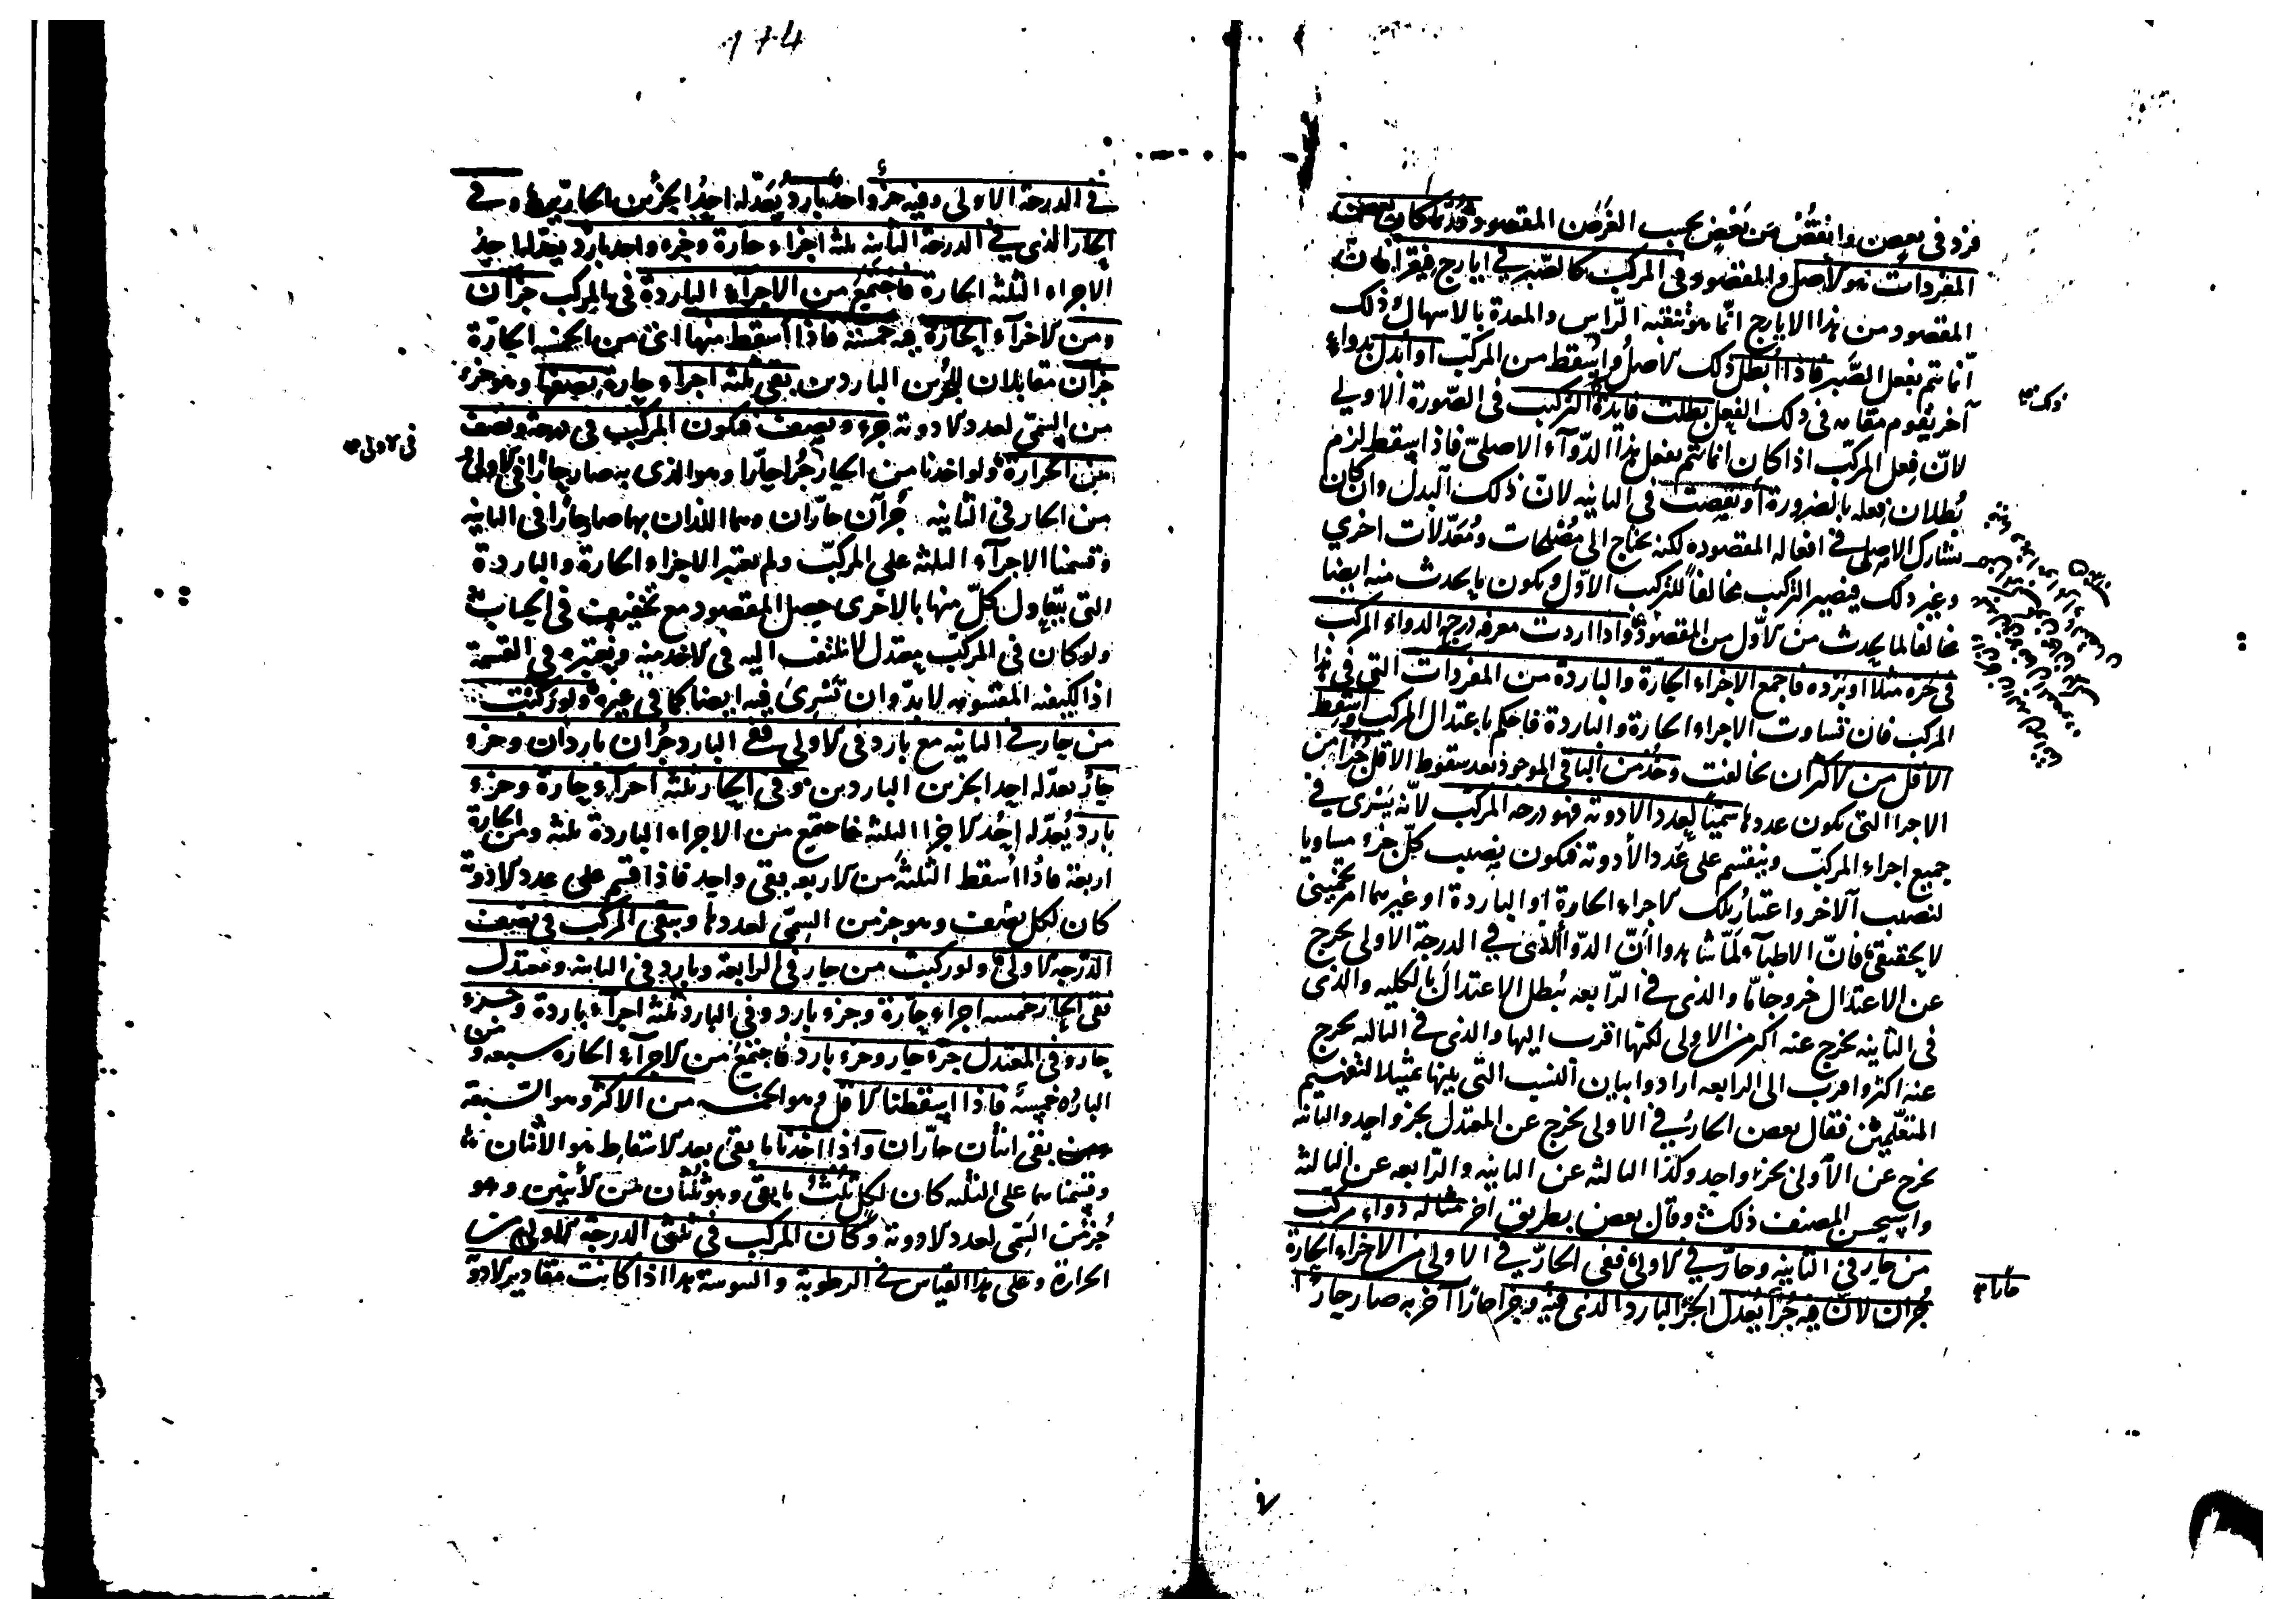 فزد فى بعض وانقص من بعض بحسب الغرض المقصود وقد كان بعض
المفردات هو الاصل والمقصود فى المركب كالصبر في ايارج فيقرا فان
المقصود من هذا الايارج انما هو تنقية الراس والمعدة بالاسهال وذلك
انما يتم بفعل الصبر فاذا ابطل ذلك الاصل واسقط من المركب او ابدل بدواء
آخر يقوم مقامه فى ذلك الفعل بطلت فايدة التركيب فى الصورة الاولى
لان فعل المركب اذا كان انما يتم بفعل هذا الدوآء الاصلى فاذا سقط لزم
بُطلان فعله بالضرورة او نقصت فى الثانيه لان ذلك البدل وان كان
يشارك الاصلى في افعاله المقصوده لكنه يحتاج الى مصلحات ومُعَدّلات اخرى
وغير ذلك فيصير التركيب مخالفاً للتركيب الاول ويكون ما يحدث منه ايضا
مخالفا لما يحدث من الاول من المقصود واذا اردت معرفه درجة الدواء المركب
فى حره مثلا او برده فاجمع الاجزاء الحارة والباردة من المفردات التى فى هذا
المركب فان تساوت الاجزاء الحارة والباردة فاحكم باعتدال المركب واسقط
الاقل من الاكثر ان تخالفت وخُذ من الباقى الموجود بعد سقوط الاقل جُزا من
الاجزا التى يكون عددها سميّا لعدد الادوية فهو درجه المركب لانه يَسْرى في
جميع اجزاء المركب وينقسم على عدد الأدوية فيكون نصيب كل جزء مساويا
لنصيب الآخر واعتبار تلك الاجزاء الحارة او الباردة او غيرهما امر تخمينى
لا حقيقى فان الاطبآء لمّا شاهدوا انّ الدوآ الذى في الدرجة الاولى يخرج
عن الاعتدال خروجا ما والذى في الرابعه يُبطل الاعتدال بالكليه والذى
فى الثانيه يخرج عنه اكثر من الاولى لكنها اقرب اليها والذى في الثالثه يخرج
عنه اكثر واقرب الى الرابعه ارادوا بيان النسب التى بينها تمثيلا لتفهيم
المتعلمين فقال بعض الحار في الاولى يخرج عن المعتدل بجزء واحد والثانيه
يخرج عن الاولى بجزء واحد وكذا الثالثه عن الثانيه والرابعه عن الثالثه
واستحسن المصنف ذلك وقال بعض بطريق اخر مثاله دواء مركب
من حار في الثانيه وحار في الاولى ففى الحار في الاولى من الاجزاء الحارة
جُزآن لان فيه جُزأ يُعَدل الجُزء البارد الذى فيه وجزا حارّا آخر به صار حارّا
فى الدرجة الاولى وفيه جزء واحد بارد يُعَدّله احدُ الجزئين الحارّين وفى
الحار الذى في الدرجة الثانيه ثلثه اجزاء حارة وجزء واحد بارد يعدّله احدُ
الاجزاء الثلثه الحارة فاجتمع من الاجزاء الباردة فى المركب جزآن
ومن الاجزآء الحارة خمسة فاذا اسقط منها اثنى من الخمسه الحارّة
جزآن مقابلان للجزئين الباردين بقى ثلثه اجزاء حارة نصفها وهو جزء
من السمىّ لعدد الادوية جزء ونصف فيكون المركب فى درجة ونصف
من الحرارة ولو اخذنا من الحار جُزا حارّا وهو الذى به صار حارّا فى الاولى و
من الحار فى الثانيه جُزآن حارّان وهما اللذان بهما صار حارّا فى الثانيه
وقسمنا الاجزآء الثلثة على المركب ولم نعتبر الاجزاء الحارة والباردة
التى يتعادل كلّ منها بالاخرى حصل المقصود مع تخفيف فى الحساب
ولو كان فى المركب معتدل لا يلتفت اليه فى الاخذ منه ويعتبره فى القسمة
اذ الكيفيه المقسومه لابدّ وان تَسْرِىَ فيه ايضا كما فى غيره ولو ركبت
من حار في الثانيه مع بارد فى الاولى ففى البارد جُزآن باردان وجزء
حارّ يعدّله احد الجزئين الباردين وفى الحار ثلثه اجزاء حارة وجزء
بارد يُعدّله احدُ الاجزا الثلثه فاجتمع من الاجزاء الباردة ثلثه ومن الحارة
اربعة فاذا اسقط الثلثة من الاربعه بقى واحد فاذا قسم على عدد الادوية
كان لكل نصف وهو جزء من السمىّ لعددها وبقى المركب فى نصف
الدرجه الاولى ولو ركبت من حار فى الرابعة وبارد فى الثانيه ومعتدل
ففى الحار خمسه اجزاء حارة وجزء بارد وفى البارد ثلثه اجزآء باردة وجزء
حار وفى المعتدل جزء حار وجزء بارد فاجتمع من الاجزآء الحاره سبعه ومن
البارده خمسه فاذا اسقطنا الاقل وهو الخمسه من الاكثر وهو السبعة
بقى اثنان حارّان واذا اخذنا ما بقى بعد الاسقاط هو الاثنان
وقسمناهما على الثلثه كان لكل ثلثُ ما بقى وهو ثُلثان من الاثنين وهو
جُزء من السمّى لعدد الادوية وكان المركب فى ثلثى الدرجة الاولى من
الحرارة وعلى هذا القياس فى الرطوبة واليبوسة هذا اذا كانت مقادير الادوية
ذلك
حارا
فى الاولى
174